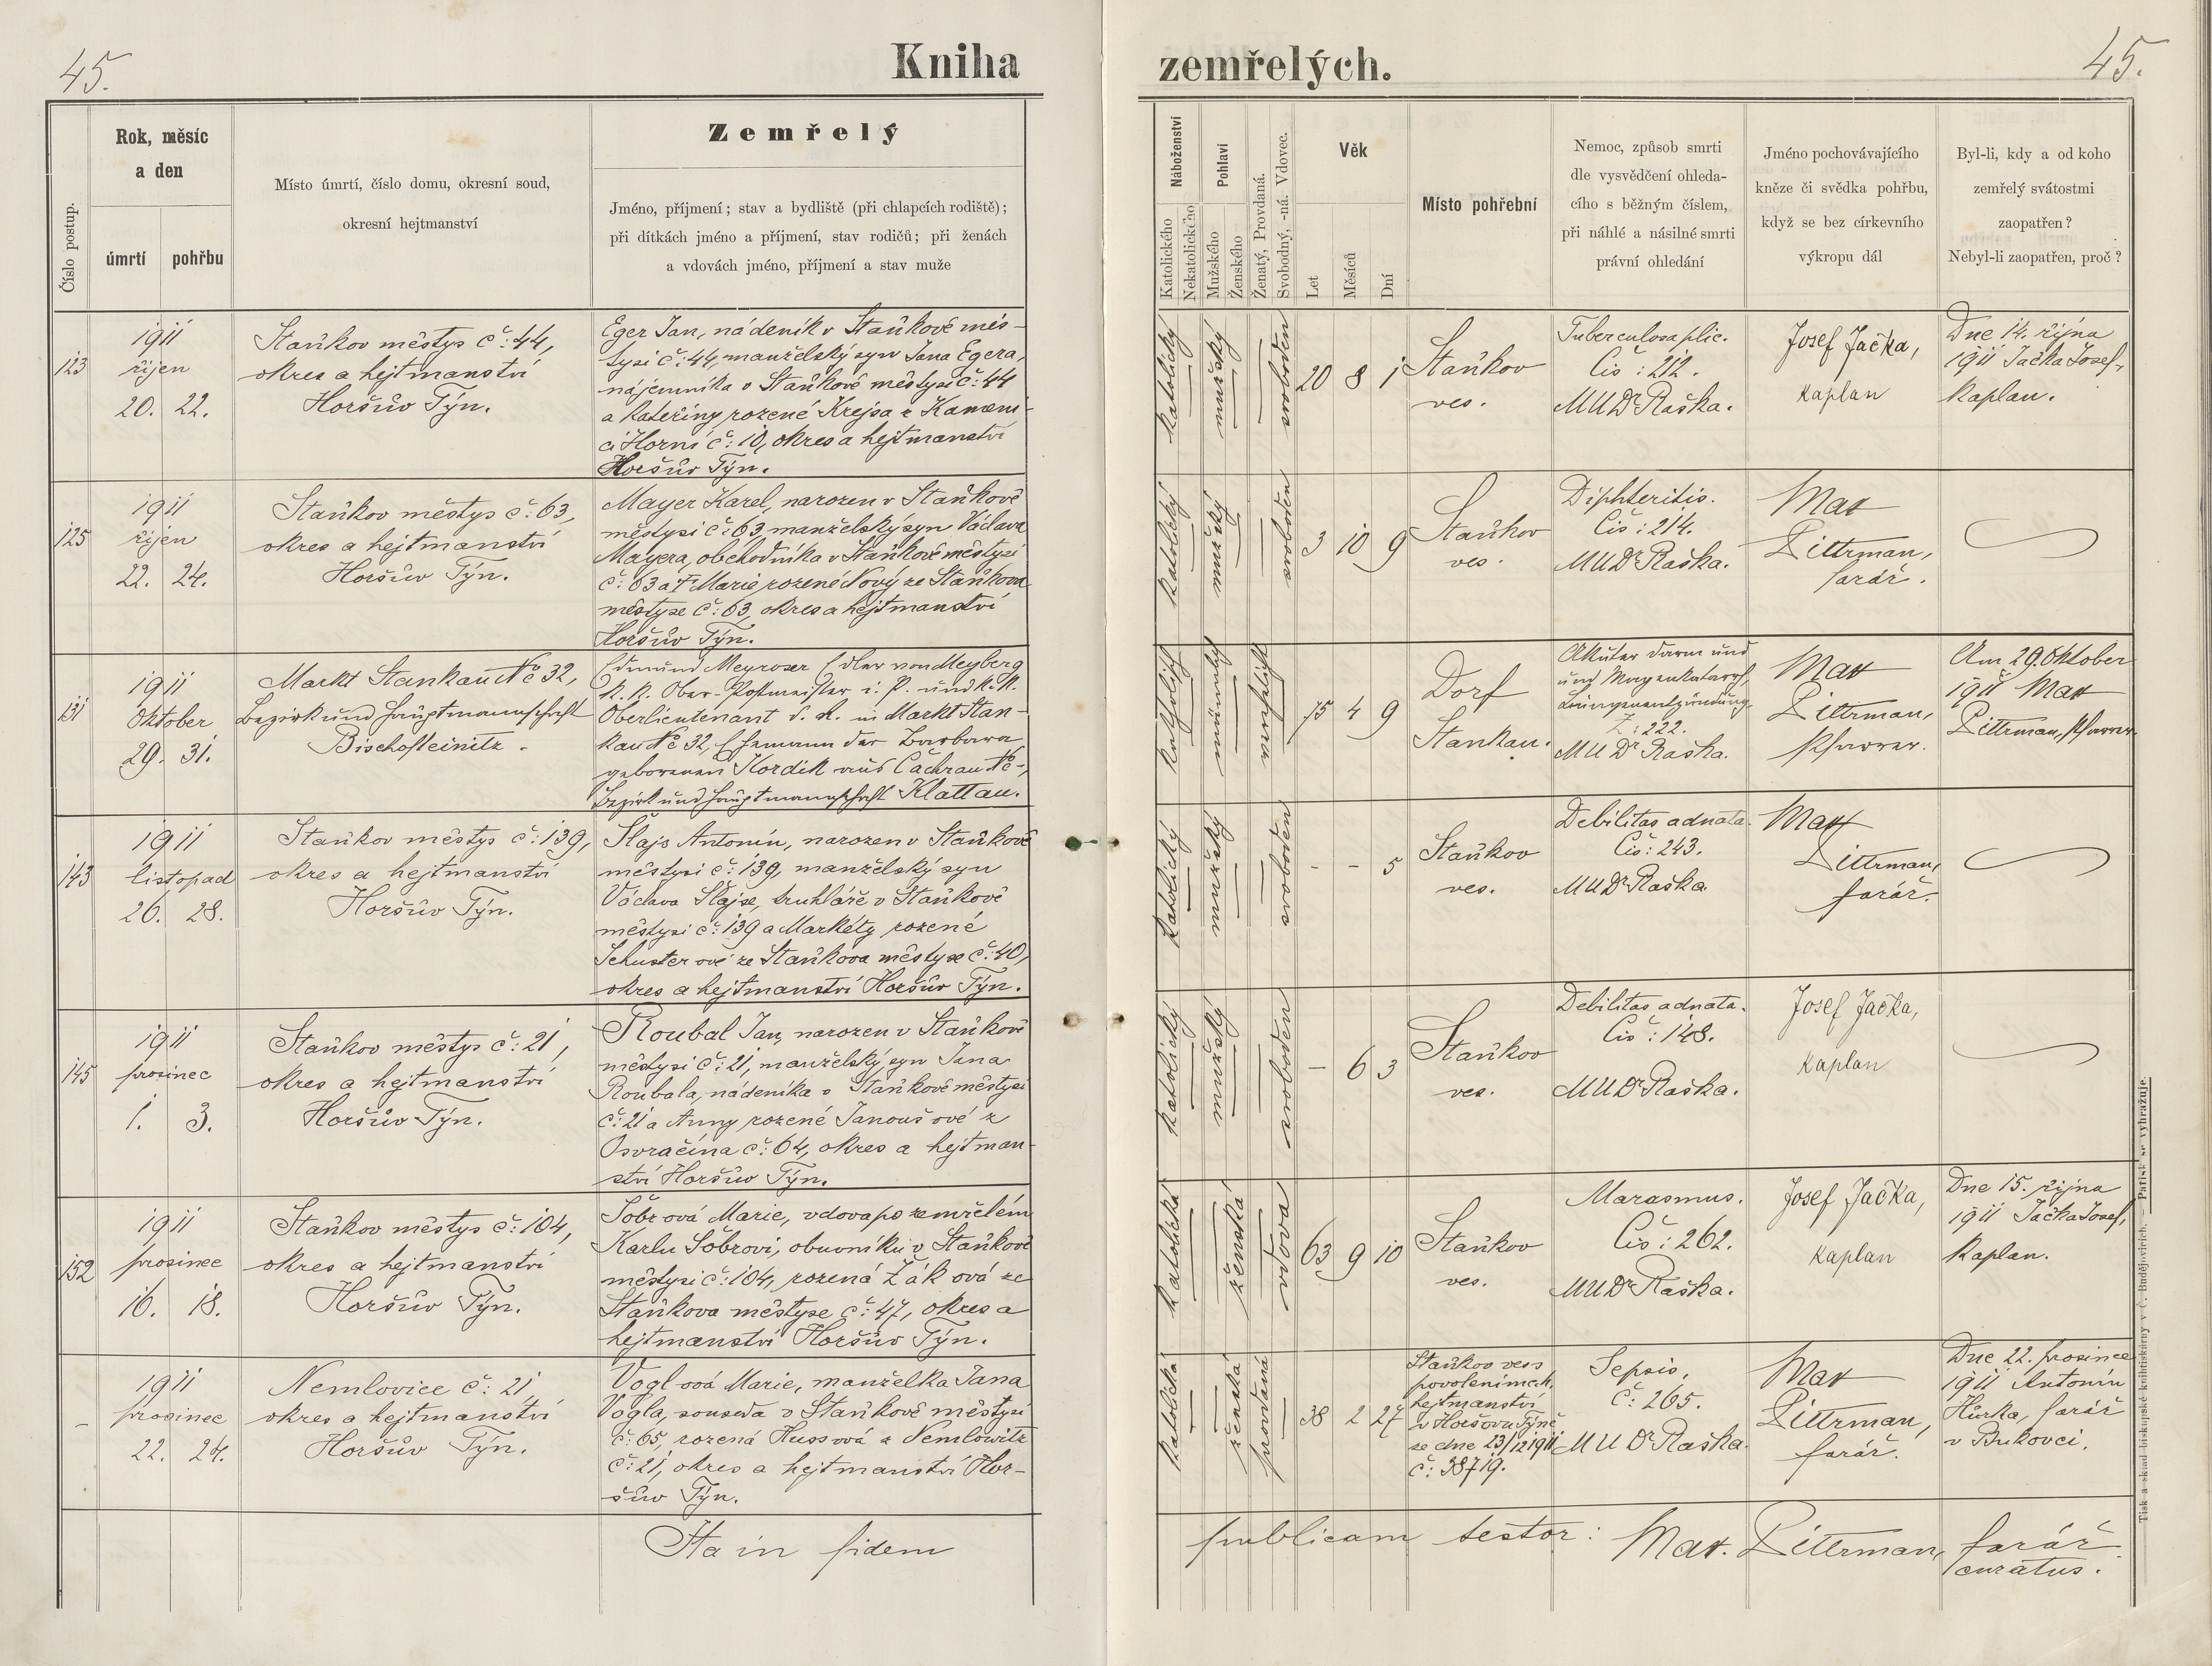 45.
Kniha
zemřelých.
45.
Číslo postup.
Rok, měsíc
a den
úmrtí
pohřbu
Místo úmrtí, číslo domu, okresní soud,
okresní hejtmanství
Zemřelý
Jméno, příjmení; stav a bydliště (při chlapcích rodiště);
při dítkách jméno a příjmení, stav rodičů; při ženách
a vdovách jméno, příjmení a stav muže
Náboženství
Katolického
Nekatolického
Pohlaví
Mužského
Ženského
Ženatý, Provdaná.
Svobodný, -ná. Vdovec.
Věk
Let
Měsíců
Dní
Místo pohřební
Nemoc, způsob smrti
dle vysvědčení ohleda-
cího s běžným číslem,
při náhlé a násilné smrti
právní ohledání
Jméno pochovávajícího
kněze či svědka pohřbu,
když se bez církevního
výkropu dál
Byl-li, kdy a od koho
zemřelý svátostmi
zaopatřen?
Nebyl-li zaopatřen, proč?
123
1911
říjen
20. 22.
Staňkov městys č: 44,
okres a hejtmanství
Horšův Týn.
Eger Jan, nádeník v Staňkově měs-
tysi č: 44, manželský syn Jana Egera,
nájemníka v Staňkově městysi č: 44
a Kateřiny rozené Krejsa z Kameni-
ci Horní č: 10, okres a hejtmanství
Horšův Týn.
katolický
mužský
svoboden
20 8 1
Staňkov
ves.
Tuberculosa plic.
Čís: 212.
MUDr Raška.
Josef Jačka,
kaplan
Dne 14. října
1911 Jačka Josef,
kaplan.
125
1911
říjen
22. 24.
Staňkov městys č: 63,
okres a hejtmanství
Horšův Týn.
Mayer Karel, narozen v Staňkově
městysi č: 63, manželský syn Václava
Mayera, obchodníka v Staňkově městysi
č: 63 a † Marie rozené Nový ze Staňkova
městyse č: 63, okres a hejtmanství
Horšův Týn.
katolický
mužský
svoboden
3 10 9
Staňkov
ves.
Diphteritis.
Čís: 214.
MUDr Raška.
Max
Pittrman,
farář.
131
1911
Oktober
29. 31.
Markt Stankau No 32,
Bezirk und Hauptmannschaft
Bischofteinitz.
Edmund Meyroser Edler von Meyberg
k. k. Ober-Postmeister i. P. und k. k.
Oberlieutenant d. R. in Markt Stan-
kau No 32, Ehemann der Barbara
geborenen Kordik aus Čachrau No -,
Bezirk und Hauptmannschaft Klattau.
katholisch
männlich
verehlicht
75 4 9
Dorf
Stankau.
Akuter Darm und
und Magenkatarrh,
Lungenentzündung.
Z: 222.
MUDr Raška.
Max
Pittrman,
Pfarrer.
Am 29. Oktober
1911 Max
Pittrman, Pfarrer.
143
1911
listopad
26. 28.
Staňkov městys č: 139,
okres a hejtmanství
Horšův Týn.
Šlajs Antonín, narozen v Staňkově
městysi č: 139, manželský syn
Václava Šlajse, truhláře v Staňkově
městysi č: 139 a Markéty rozené
Schusterové ze Staňkova městyse č: 40,
okres a hejtmanství Horšův Týn.
katolický
mužský
svoboden
- - 5
Staňkov
ves.
Debilitas adnata.
Čís: 243.
MUDr Raška
Max
Pittrman,
farář.
145
1911
prosinec
1. 3.
Staňkov městys č: 21,
okres a hejtmanství
Horšův Týn.
Roubal Jan, narozen v Staňkově
městysi č: 21, manželský syn Jana
Roubala, nádeníka v Staňkově městysi
č: 21 a Anny rozené Janoušové z
Osvračína č: 64, okres a hejtman-
ství Horšův Týn.
katolický
mužský
svoboden
- 6 3
Staňkov
ves.
Debilitas adnata.
Čís: 148.
MUDr Raška.
Josef Jačka,
kaplan
152
1911
prosinec
16. 18.
Staňkov městys č: 104,
okres a hejtmanství
Horšův Týn.
Šobrová Marie, vdova po zemřelém
Karlu Šobrovi, obuvníku v Staňkově
městysi č: 104, rozená Žáková ze
Staňkova městyse č: 47, okres a
hejtmanství Horšův Týn.
katolická
ženská
vdova
63 9 10
Staňkov
ves.
Marasmus.
Čís: 262.
MUDr Raška.
Josef Jačka,
kaplan
Dne 15. října
1911 Jačka Josef,
kaplan.
-
1911
prosinec
22. 24.
Nemlovice č: 21
okres a hejtmanství
Horšův Týn.
Voglová Marie, manželka Jana
Vogla, souseda v Staňkově městysi
č: 65, rozená Hussová z Nemlowitz
č: 21, okres a hejtmanství Hor-
šův Týn.
katolická
ženská
provdaná
38 2 27
Staňkov ves s
povolením ck.
hejtmanství
v Horšovu Týně
ze dne 23/12 1911
č: 38719.
Sepsis,
č: 265.
MUDr Raška.
Max
Pittrman,
farář.
Dne 22. prosince
1911 Antonín
Hůrka, farář
v Bukovci.
Ita in fidem
publicam testor: Max. Pittrman, farář
curatus.
Tisk a sklad biskupské knihtiskárny v Č. Budějovicích. — Patisk se vyhražuje.